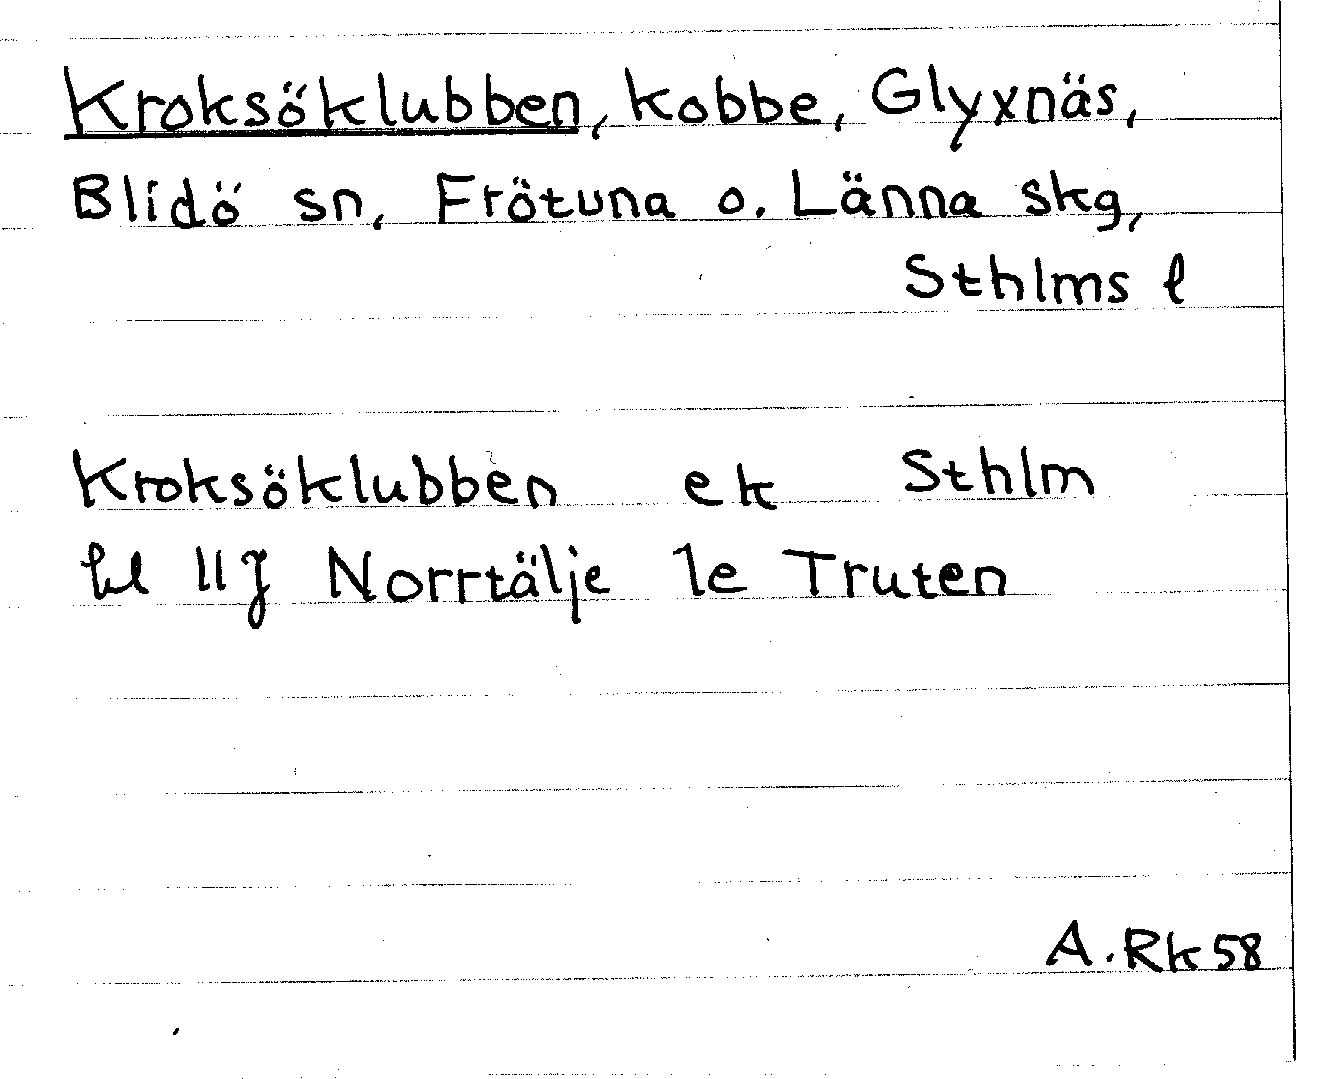 Kroksöklubben, kobbe, Glyxnäs,
Blidö sn, Frötuna o. Länna skg,
Sthlms l
Kroksöklubben ek Sthlm
bl 11J Norrtälje le Truten
A.Rk 58